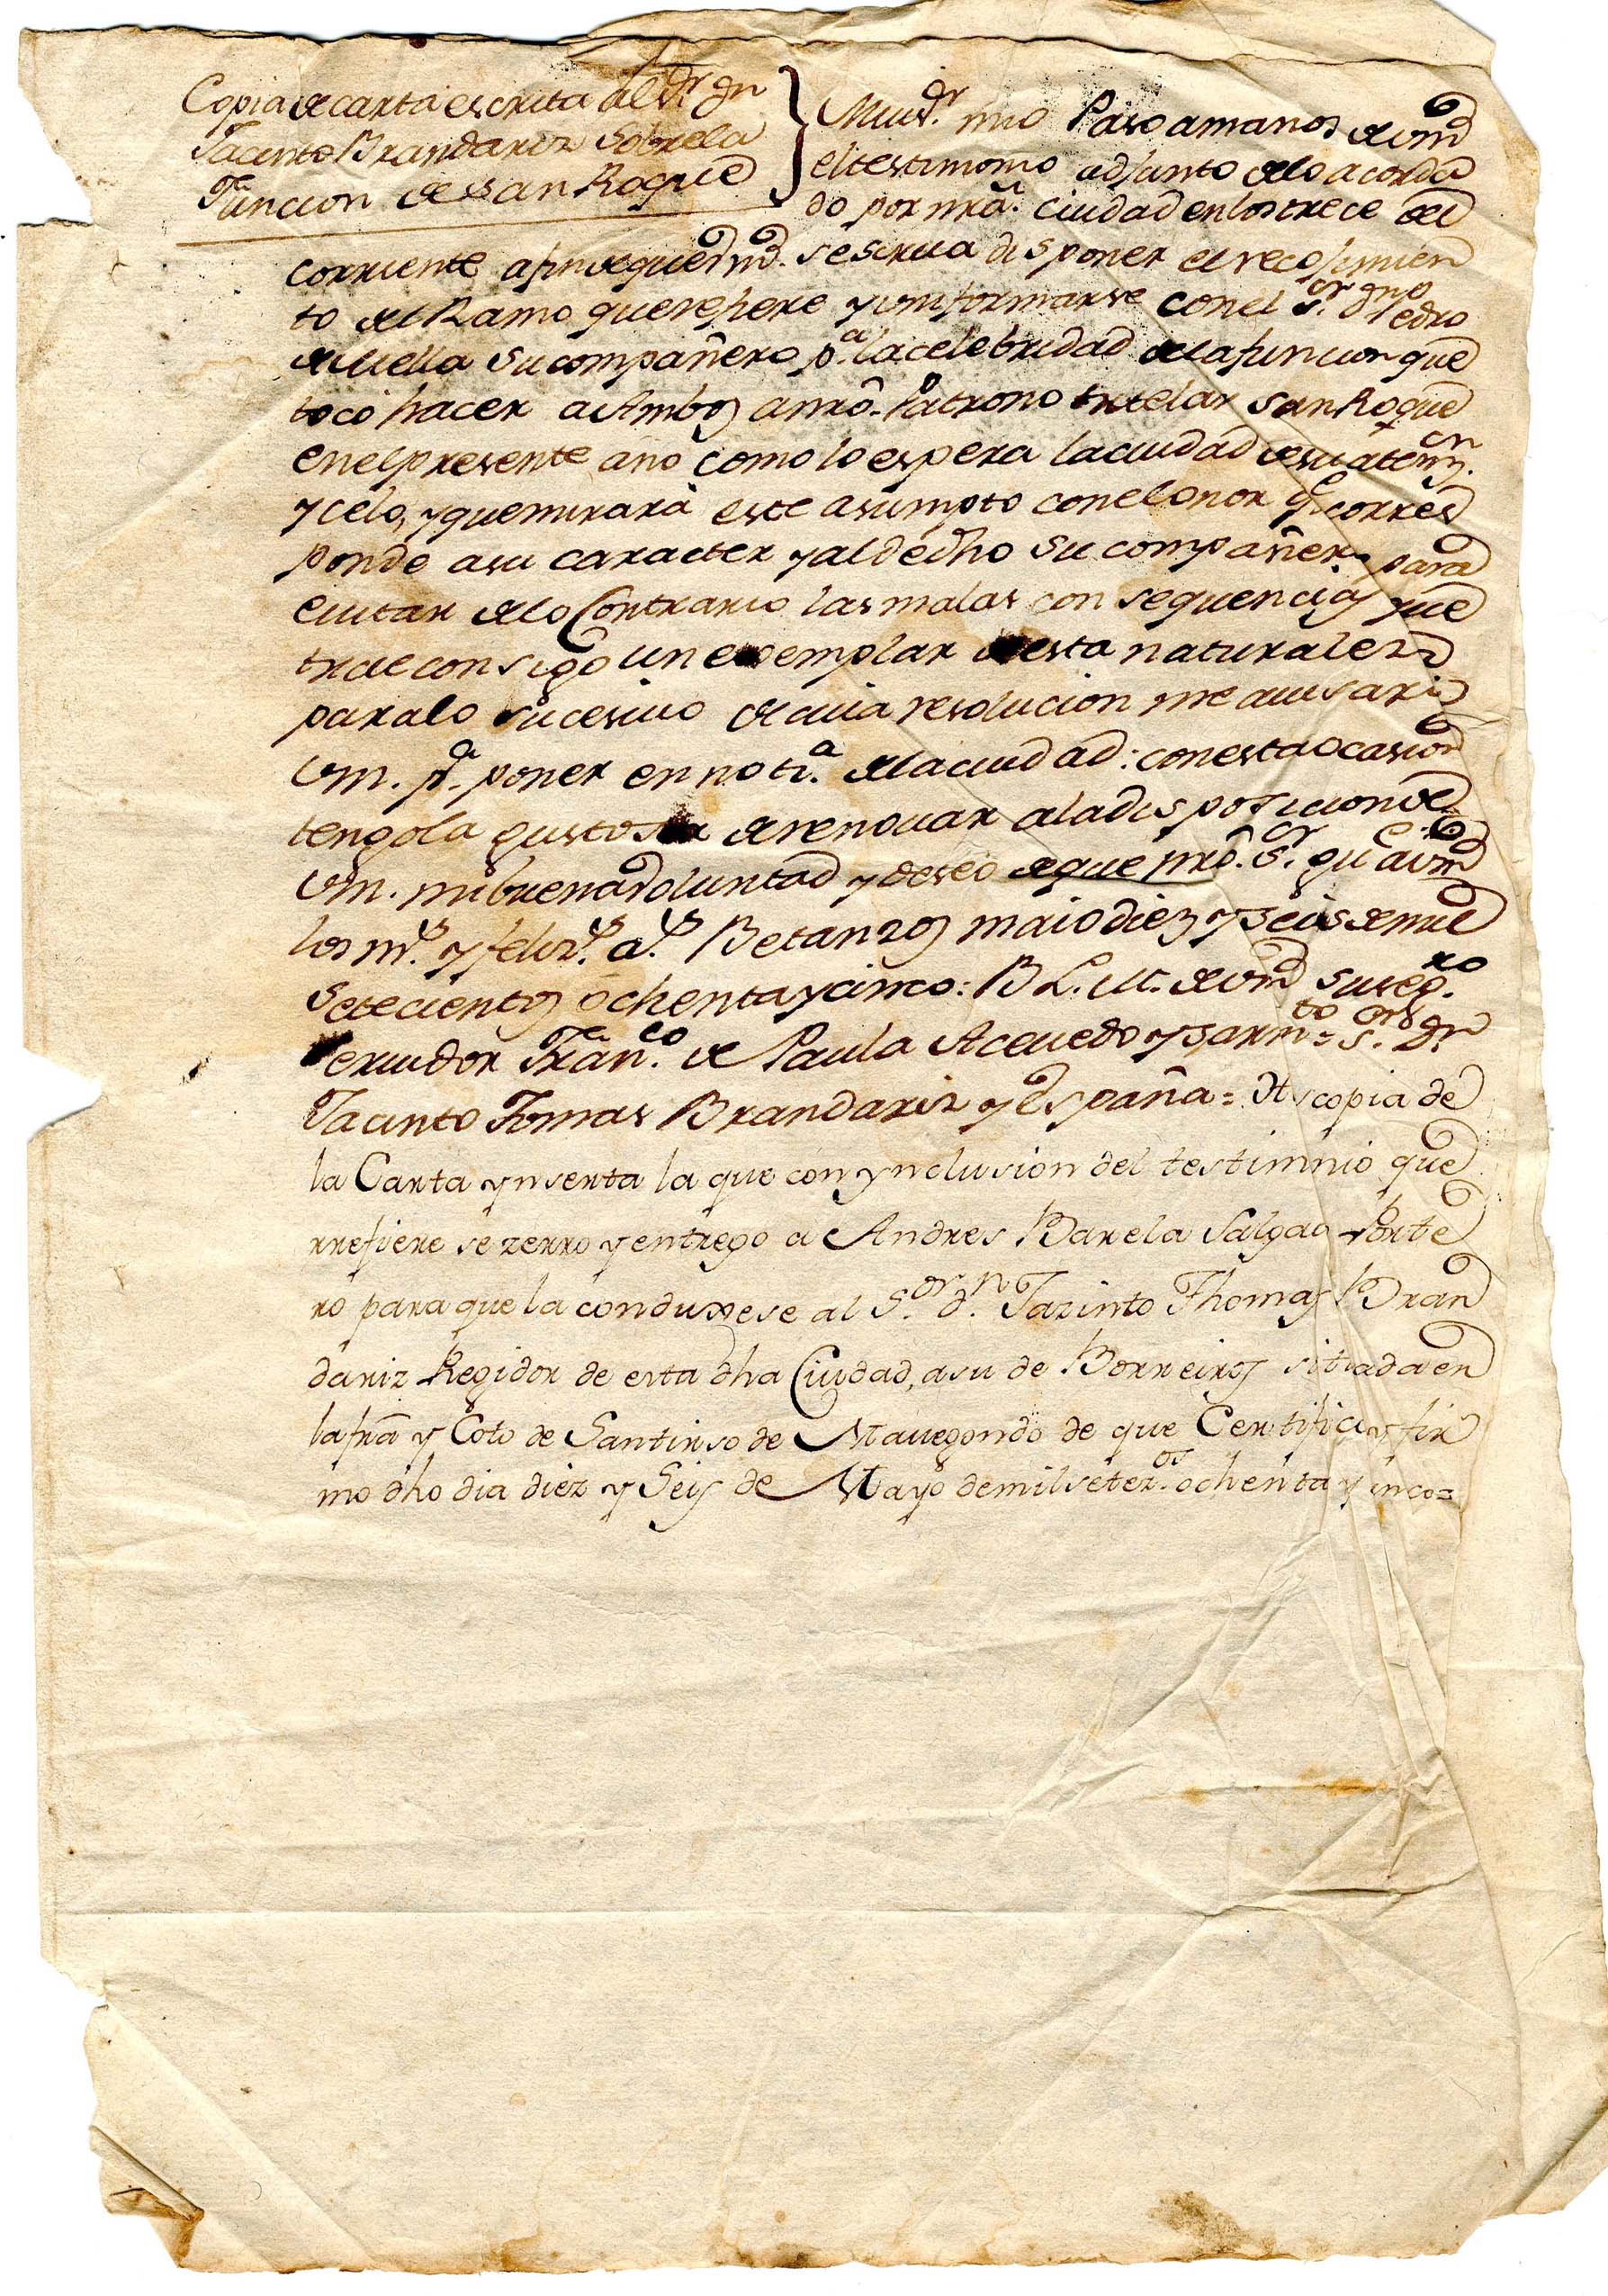 Copia de carta escrita al Sr. Dn
Jacinto Brandariz Sobre la
Funcion de San Roque
Mui Sr. mio Paso a manos de vmd
el testimonio adjunto de lo acorda
do por nrã. ciudad en los trece del
corriente a fin de que vmd. se sirva disponer el recojimien
to del Ramo que refiere y uniformarse con el Sr. Dn Pedro
de Vella su compañero pa. la celebridad de la funcion que
tocó hacer a Ambos a nrõ. Patrono tutelar San Roque
en el presente año como lo espera la ciudad de su atenn.
y celo, y que mirará este asumpto con el onor qe. corres
ponde a su caracter y al de dho su compañero para
evitar de lo Contrario las malas consequencias que
trae consigo un exemplar de esta naturaleza
para lo sucesivo de cuia resolucion me avisará
vm. pa. poner en notia. de la ciudad: con esta ocasion
tengo la gustosa de renovar a la disposicion de
vm. mi buena voluntad y deseo de que nrõ. Sr. gue a vmd
los ms. y felizs. as. Betanzos maio diez y seis de mil
setecientos ochenta y cinco: B. L. M. de vmd su sego.
servidor Franco. de Paula Acevedo y Sarmto = Sor. Dn
Jacinto Tomas Brandariz y España = Es copia de
la Carta ynserta la que con ynclusion del testimnio que
rrefiere se zerro y entrego a Andres Barela Salgado Porte
ro para que la conduxese al Sor. dn. Jazinto Thomas Bran
dariz Regidor de esta dha Ciudad, a su de Borreiros sitiada en
la frã y Coto de Santirso de Mavegondo de que Certifico y fir
mo dho dia diez y Seis de Mayo de mil setezos. ochenta y cinco=